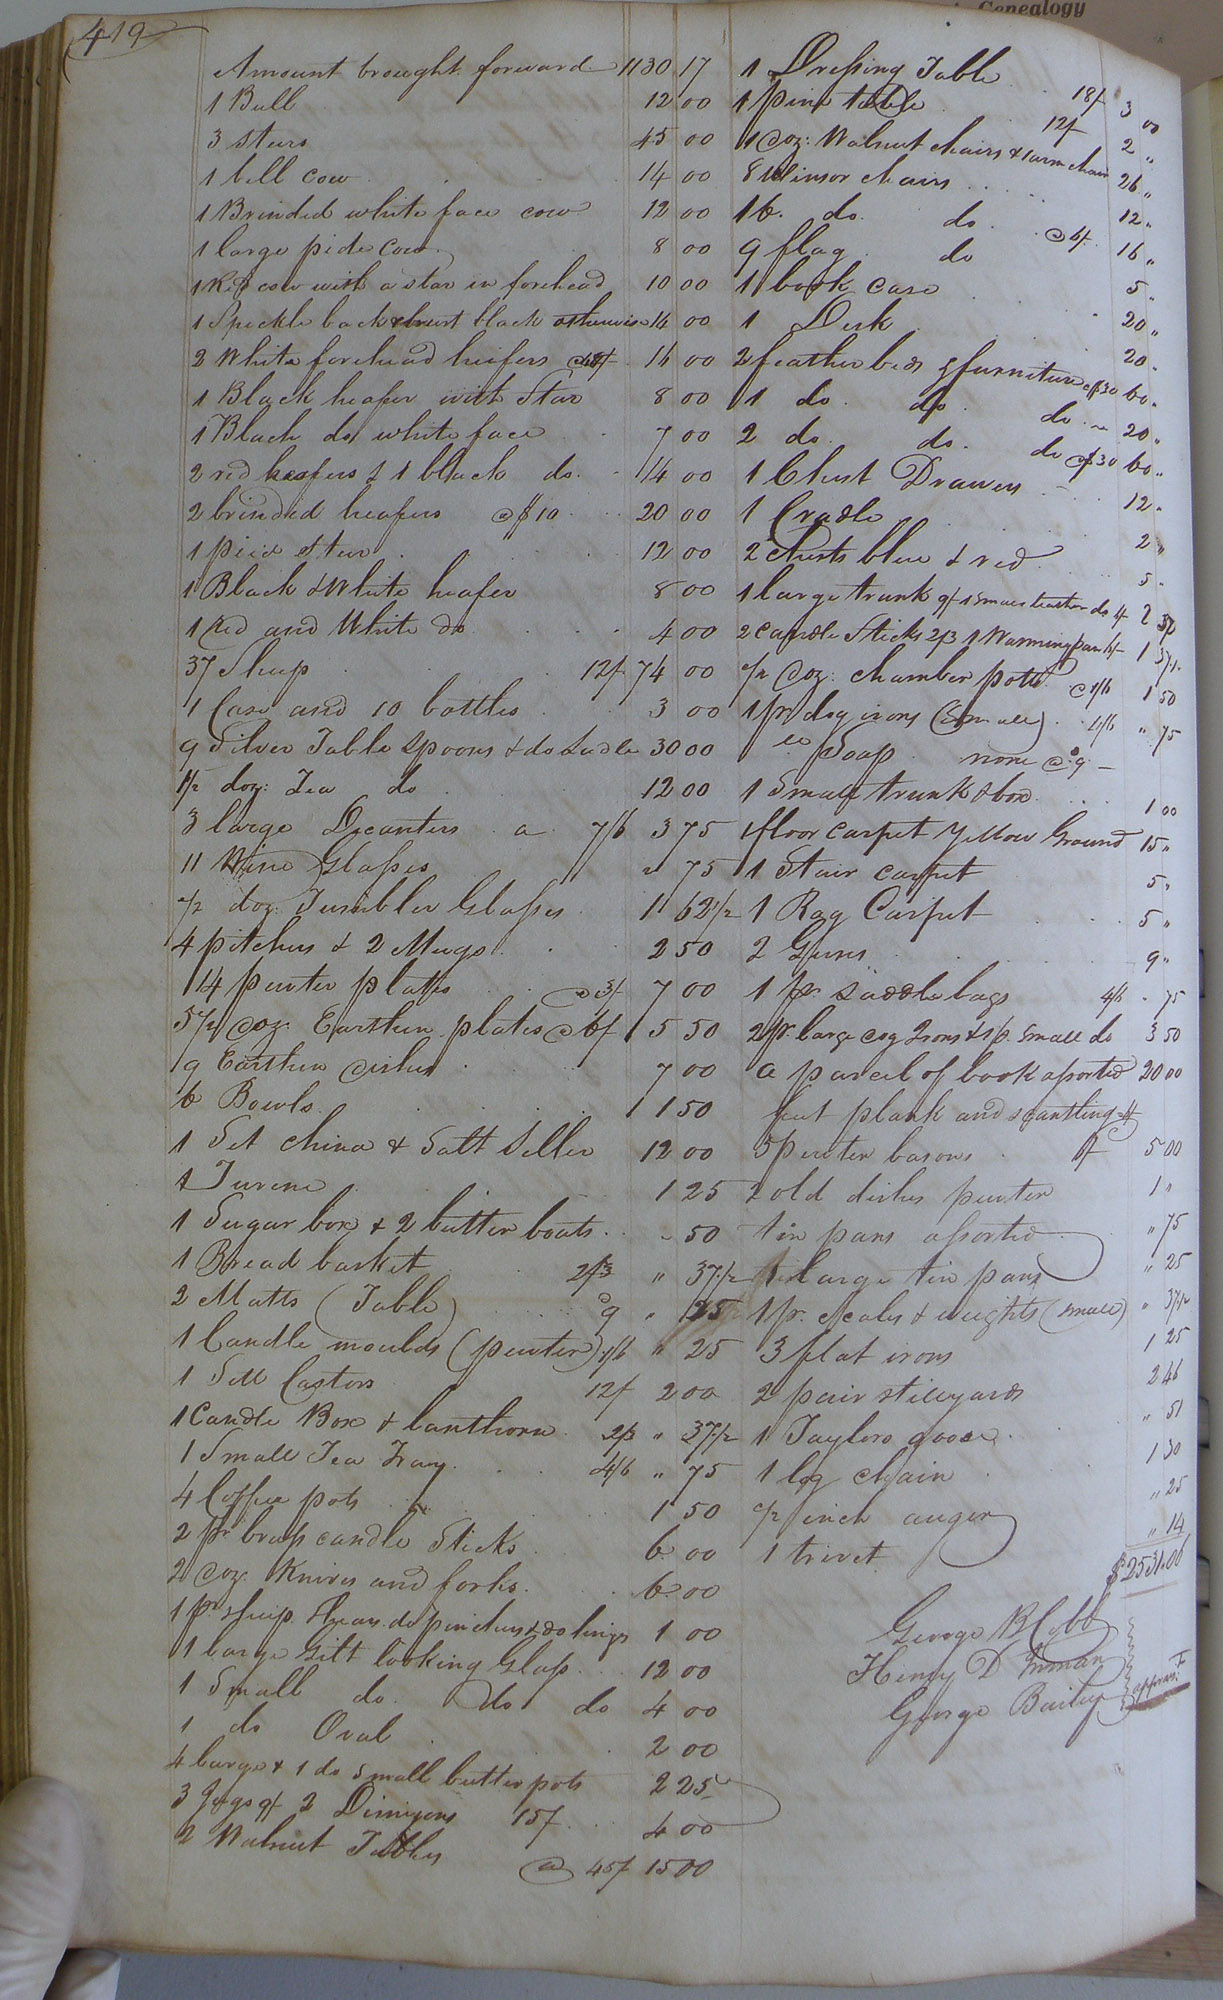 Genealogy
419
Amount brought forward 1130 17
1 Bull 12 00
3 steers 45 00
1 bell cow 14 00
1 Brinded white face cow 12 00
1 large pide cow 8 00
1 Red cow with a star in forehead 10 00
1 Speckle back & brest black otherwise 14 00
2 White forehead heifers @ 48/ 16 00
1 Black heafer with Star 8 00
1 Black do white face 7 00
2 red heafers & 1 black do. 14 00
2 brinded heafers @ $10 20 00
1 pied steer 12 00
1 Black & White heafer 8 00
1 Red and White do 4 00
37 Sheep 12/ 74 00
1 Case and 10 bottles 3 00
9 Silver Table Spoons & do Ladle 30 00
1 1/2 doz: Tea do 12 00
3 large Decanters a 7/6 3 75
11 Wine Glasses " 75
1/2 doz. Tumbler Glasses 1 62 1/2
4 pitchers & 2 Mugs 2 50
14 pewter plates @ 3/ 7 00
5 1/2 doz. Earthen plates @ 6/ 5 50
9 Earthen dishes 7 00
6 Bowls 1 50
1 Set china & Salt Seller 12 00
1 Turene 1 25
1 Sugar box & 2 butter boats " 50
1 Bread basket 2/3 " 37 1/2
2 Matts (Table) 9 " 25
1 Candle moulds (pewter) 1/6 " 25
1 Sett Castors 12/ 2 00
1 Candle Box & lanthorn 2/3 " 37 1/2
1 Small Tea Tray 4/6 " 75
4 Coffee pots 1 50
2 pr brass candle Sticks 6 00
2 doz. Knives and forks 6 00
1 pr sheep Shears do pinchers & do tongs 1 00
1 large Gilt looking Glass 12 00
1 Small do. do do 4 00
1 do Oval 2 00
4 large & 1 do Small butter pots 2 25
3 Jugs & 2 Dimijons 15/ 4 00
2 Walnut Tables @ 45/ 15 00
1 Dressing Table 18/ 3 00
1 pine table 12/ 2 "
1 doz: Walnut chairs & 1 arm chair 26 "
8 Winsor chairs 12 "
16. do do 16 "
9 flag do @ 4/ 5 "
1 book case 20 "
1 Desk 20 "
2 feather beds & furniture @ $30 60 "
1 do. do. do 20 "
2 do. do. do @ $30 60 "
1 Chest Drawers 12 "
1 Cradle 2 "
2 chests blue & red 5 "
1 large trunk 9/ 1 Small leather do 6/ 2 50
2 candle Sticks 2/3 1 Warming pan 6/ 1 37 1/2
1/2 doz: chamber potts @ 1/6 1 50
1 pr dog irons (Small) 4/6 " 75
Soap none @ 9
1 Small trunk & box 1 00
1 floor carpet Yellow Ground 15 "
1 Stair carpet 5 "
1 Rag Carpet 5 "
2 Guns 9 "
1 pr. saddle bags 4/6 " 75
2 pr. large dog Irons & 1 p. Small do 3 50
a parcel of book assorted 20 00
feet plank and scantling
5 pewter basons 6/ 5 00
2 old dishes pewter 1 "
tin pans assorted " 75
large tin pans " 25
1 pr. scales & weights (small) " 37 1/2
3 flat irons 1 25
2 pair stillyards 2 46
1 Taylors goose " 51
1 log chain 1 30
1/2 inch auger " 25
1 trivet " 14
$2531.00
George B Cobb
Henry D Inman
George Bailey
apprais.rs